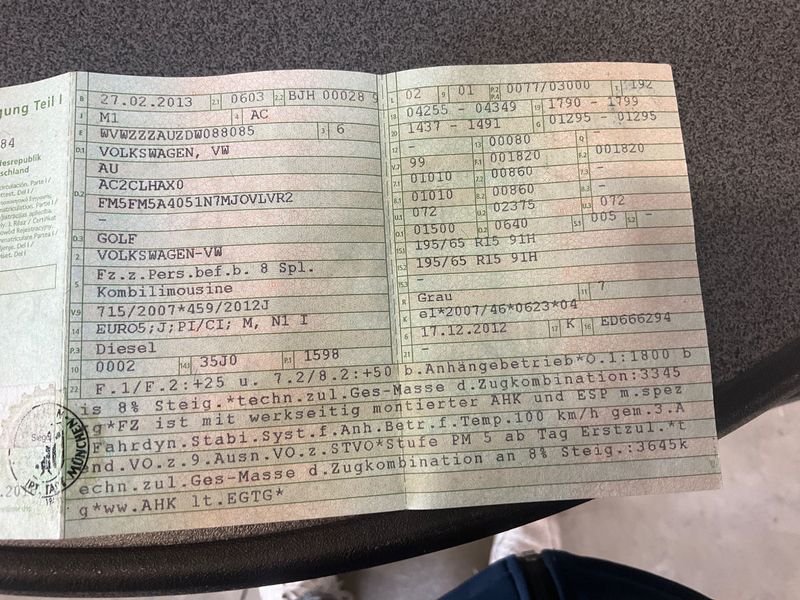 gung Teil I
84
desrepublik
schland
B 27.02.2013 2.1 0603 2.2 BJH 00028 9
J M1 4 AC
E WVWZZZAUZDW088085 3 6
D.1 VOLKSWAGEN, VW
AU
D.2 AC2CLHAX0
FM5FM5A4051N7MJOVLVR2
-
D.3 GOLF
2 VOLKSWAGEN-VW
5 Fz.z.Pers.bef.b. 8 Spl.
Kombilimousine
V.9 715/2007*459/2012J
14 EURO5;J;PI/CI; M, N1 I
P.3 Diesel
10 0002 14.1 35J0 P.1 1598
L 02 9 01 P.2 P.4 0077/03000 T 192
18 04255 - 04349 19 1790 - 1799
20 1437 - 1491 G 01295 - 01295
12 - 13 00080 Q -
V.7 99 F.1 001820 F.2 001820
7.1 01010 7.2 00860 7.3 -
8.1 01010 8.2 00860 8.3 -
U.1 072 U.2 02375 U.3 072
O.1 01500 O.2 0640 S.1 005 S.2 -
15.1 195/65 R15 91H
15.2 195/65 R15 91H
15.3 -
R Grau 11 7
K e1*2007/46*0623*04
6 17.12.2012 17 K 16 ED666294
21 -
22 F.1/F.2:+25 u. 7.2/8.2:+50 b.Anhängebetrieb*O.1:1800 b
is 8% Steig.*techn.zul.Ges-Masse d.Zugkombination:3345
g*FZ ist mit werkseitig montierter AHK und ESP m.spez
Fahrdyn.Stabi.Syst.f.Anh.Betr.f.Temp.100 km/h gem.3.A
nd.VO.z.9.Ausn.VO.z.STVO*Stufe PM 5 ab Tag Erstzul.*t
echn.zul.Ges-Masse d.Zugkombination an 8% Steig.:3645k
g*ww.AHK lt.EGTG*